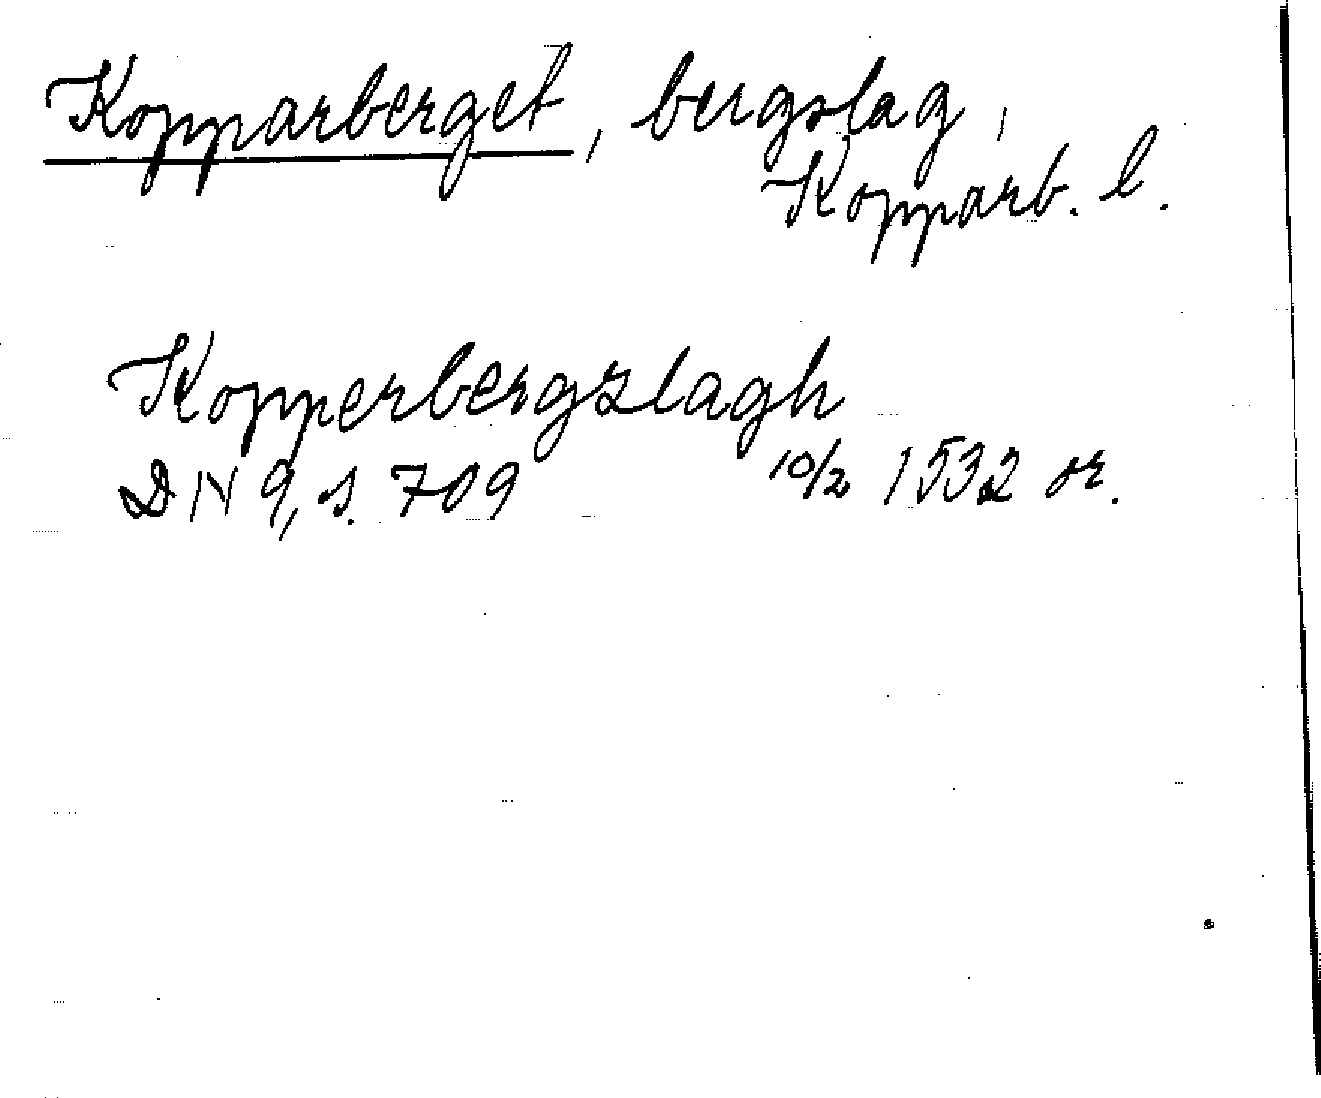 Kopparberget, bergslag,
Kopparb. l.
Kopperbergzlagh
DN 9, s. 709 10/2 1532 or.